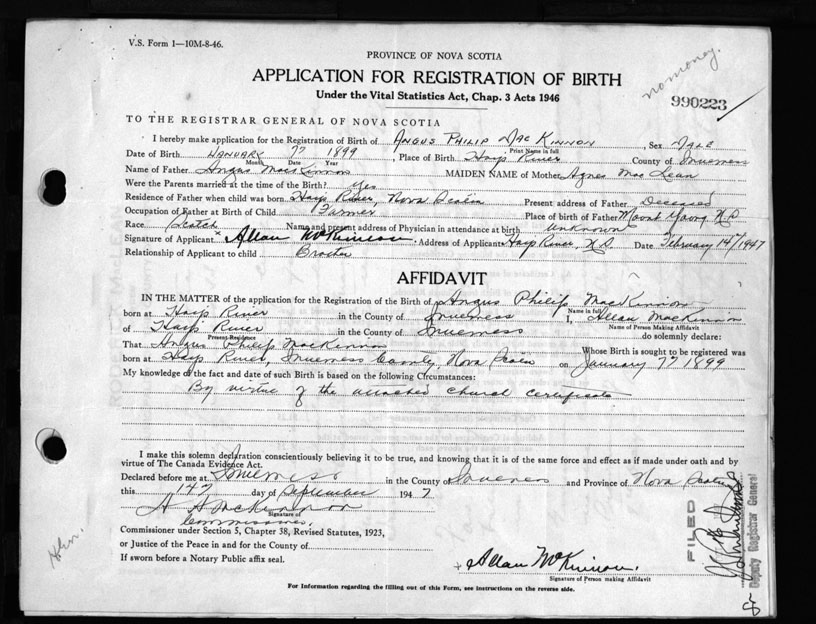 V.S. Form 1—10M-8-46.
no money.
PROVINCE OF NOVA SCOTIA
APPLICATION FOR REGISTRATION OF BIRTH
990223
Under the Vital Statistics Act, Chap. 3 Acts 1946
TO THE REGISTRAR GENERAL OF NOVA SCOTIA
I hereby make application for the Registration of Birth of Angus Philip MacKinnon, Sex Male
Print Name in full
Date of Birth January 7th 1899, Place of Birth Harp River County of Inverness
Month Date Year
Name of Father Angus MacKinnon MAIDEN NAME of Mother Agnes MacLean
Were the Parents married at the time of the Birth? Yes
Residence of Father when child was born Harp River, Nova Scotia Present address of Father Deceased
Occupation of Father at Birth of Child Farmer Place of birth of Father Mount Young N.S.
Race Scotch Name and present address of Physician in attendance at birth Unknown
Signature of Applicant x Allan McKinnon. Address of Applicant Harp River, N.S. Date February 14th/1947
Relationship of Applicant to child Brother
AFFIDAVIT
IN THE MATTER of the application for the Registration of Birth of Angus Philip MacKinnon
Name in full
born at Harp River in the County of Inverness I, Allan MacKinnon
Name of Person Making Affidavit
of Harp River in the County of Inverness do solemnly declare:
Present Residence
That Angus Philip MacKinnon Whose Birth is sought to be registered was
born at Harp River, Inverness County, Nova Scotia on January 7th 1899
My knowledge of the fact and date of such Birth is based on the following Circumstances:
By virtue of the attached church certificate
I make this solemn declaration conscientiously believing it to be true, and knowing that it is of the same force and effect as if made under oath and by
virtue of The Canada Evidence Act.
Declared before me at Inverness in the County of Inverness and Province of Nova Scotia
this 14th day of September 1947
A A MacKinnon
Signature of
Commissioner.
Commissioner under Section 5, Chapter 38, Revised Statutes, 1923,
or Justice of the Peace in and for the County of
If sworn before a Notary Public affix seal.
x Allan McKinnon.
Signature of Person making Affidavit
For Information regarding the filling out of this Form, see instructions on the reverse side.
FILED
Deputy Registrar General